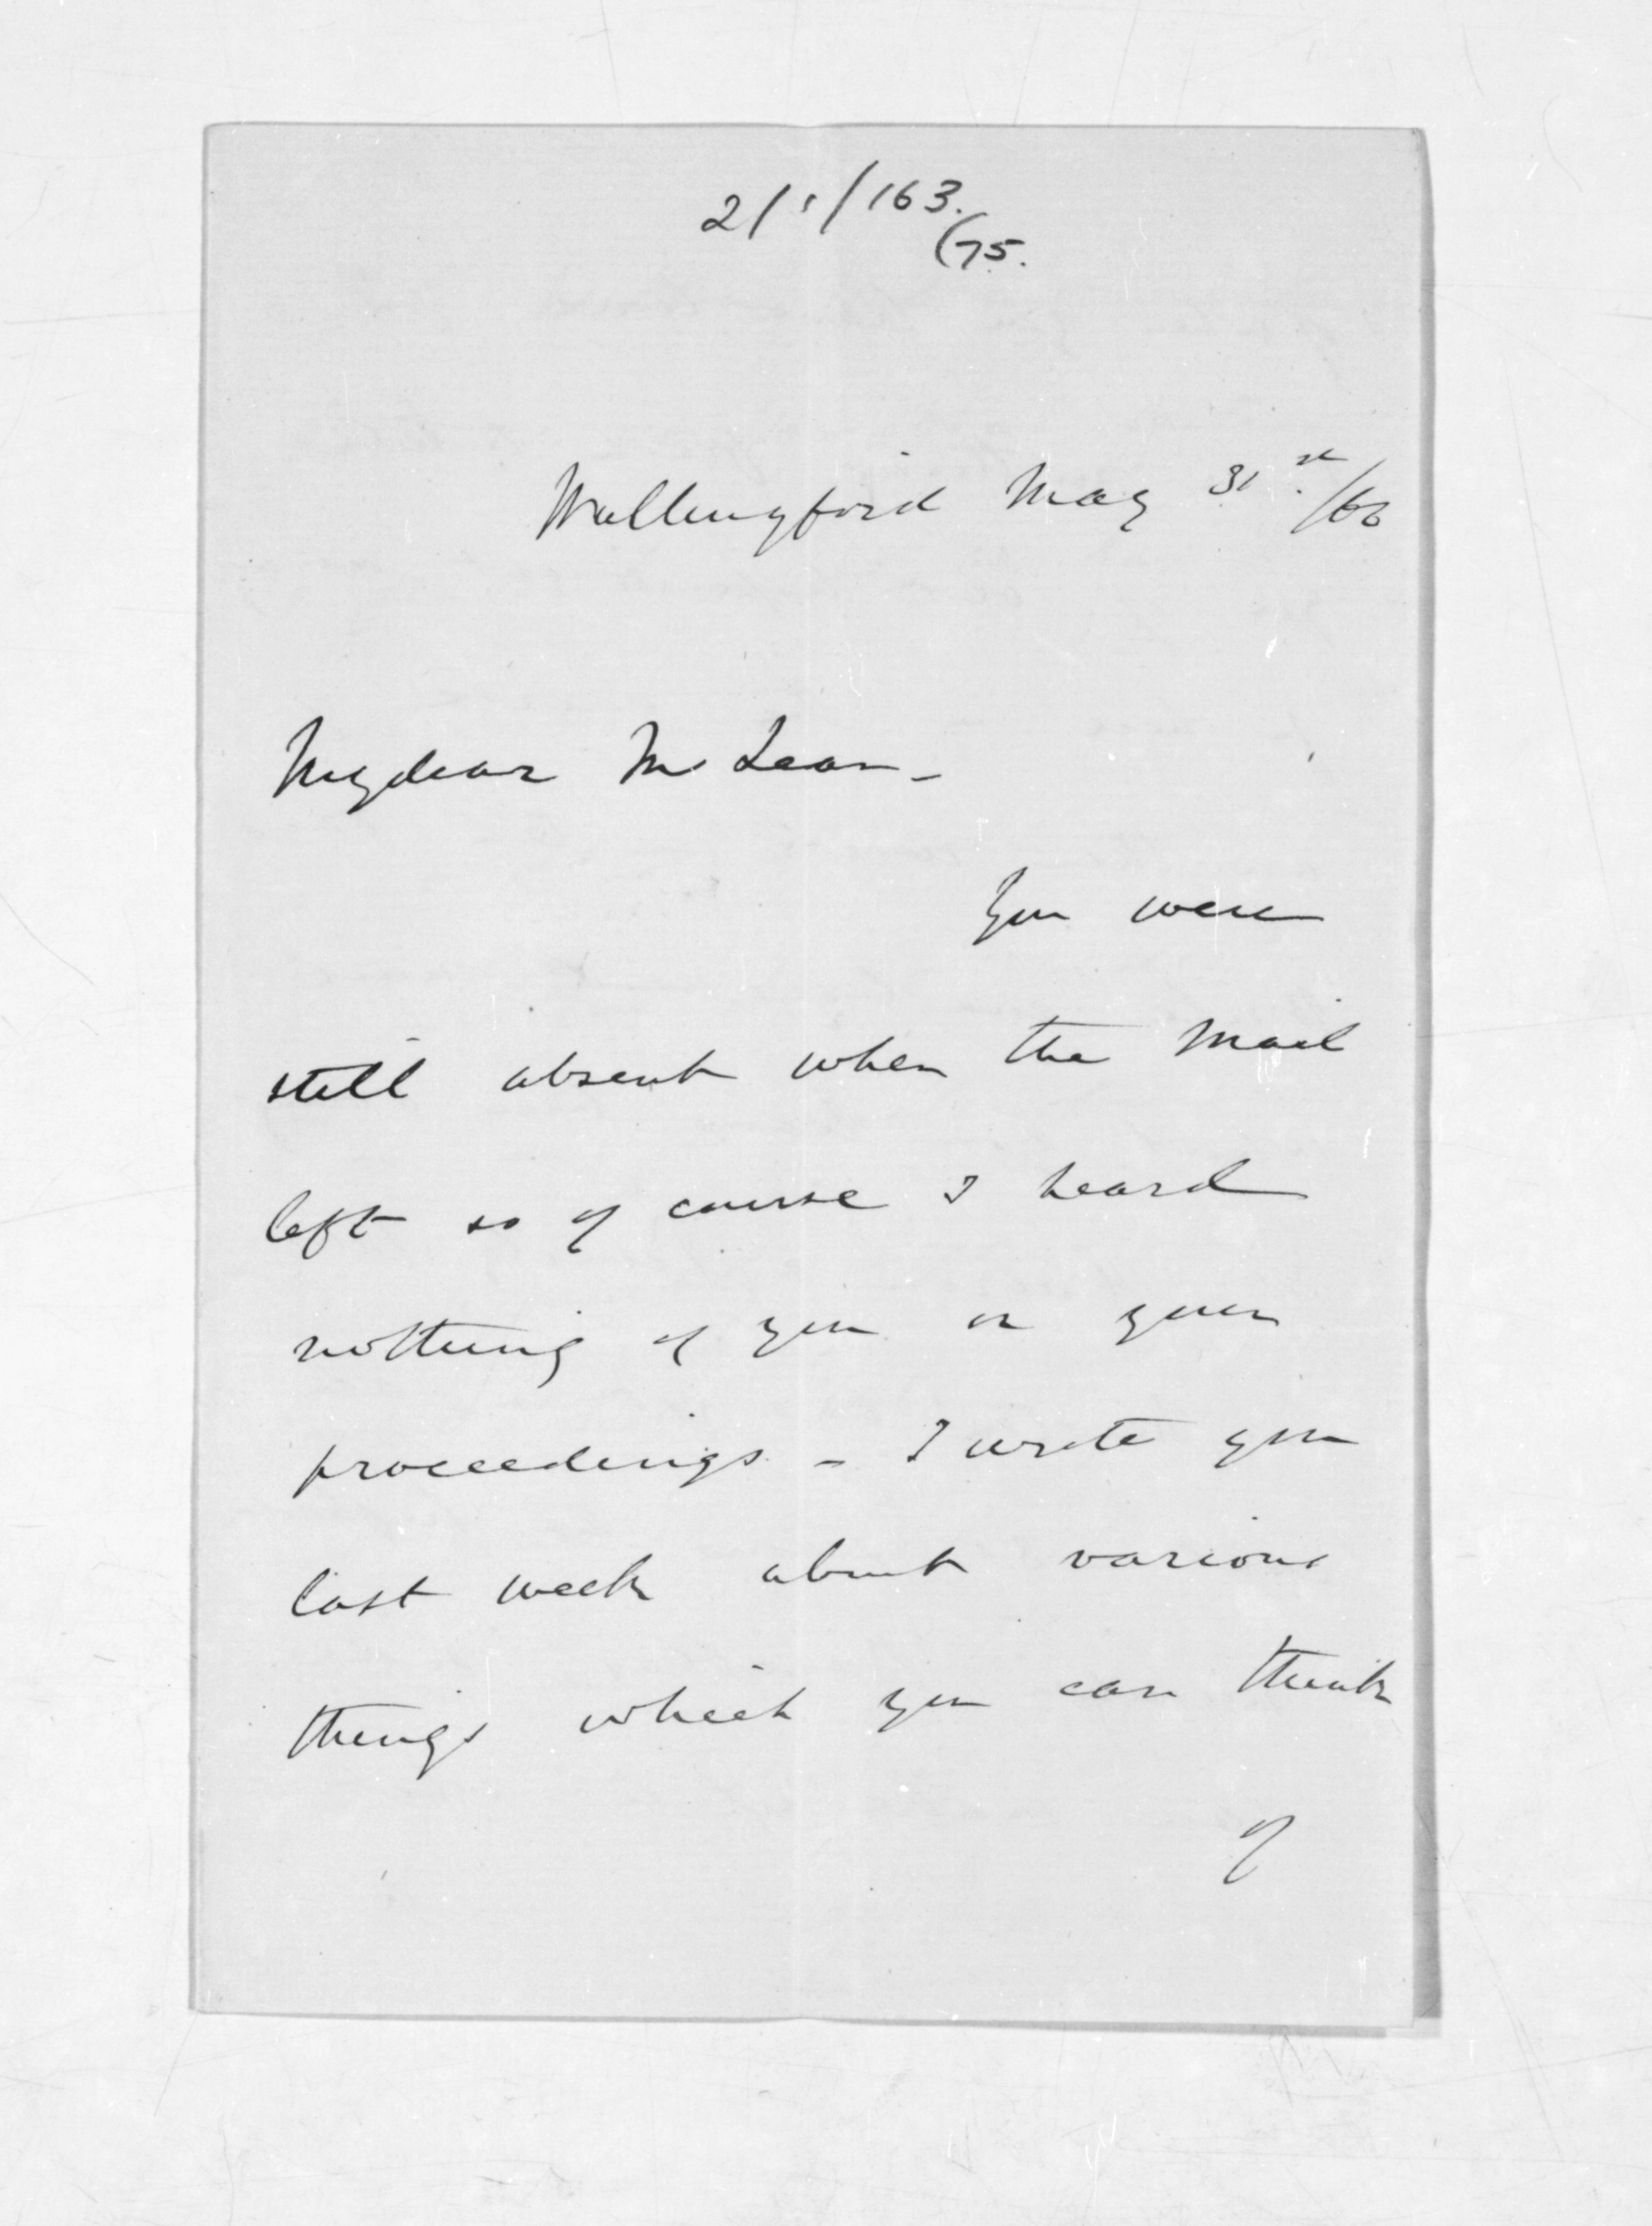 2/1/163.
(75.
Wallingford May 31st./66
My dear McLean -
You were
still absent when the Mail
left so of course I heard
nothing of you or your
proceedings - I wrote you
last week about various
things which you can think
of